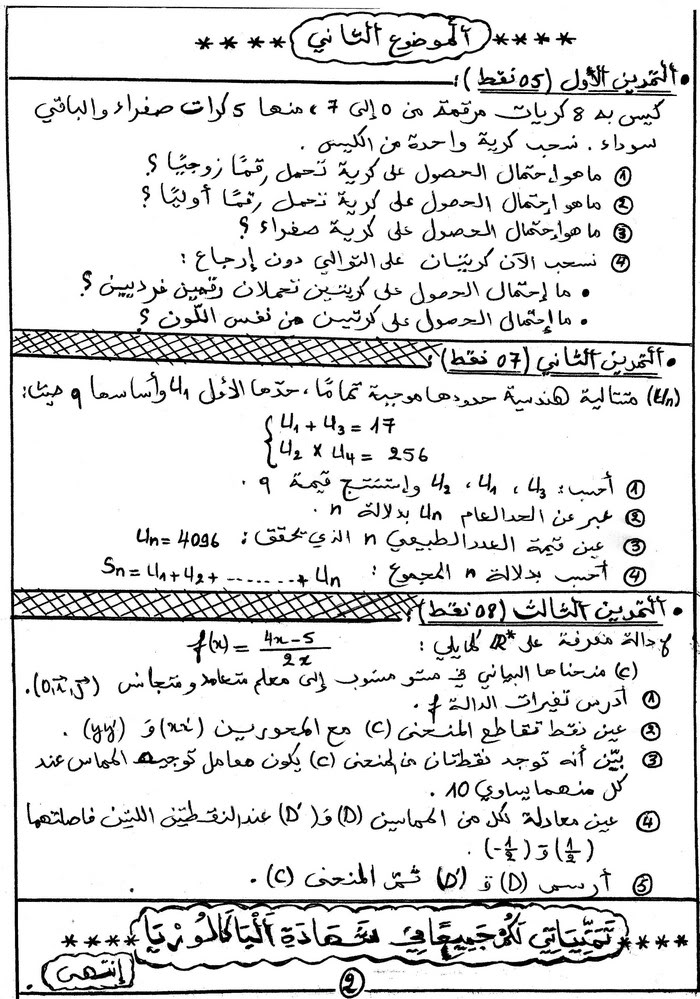 **** الموضوع الثاني ****
• التمرين الأول (05 نقط):
كيس به 8 كريات مرقمة من 0 إلى 7، منها 5 كرات صفراء والباقي
سوداء. نسحب كرية واحدة من الكيس.
① ما هو إحتمال الحصول على كرية تحمل رقمًا زوجيًا؟
② ما هو إحتمال الحصول على كرية تحمل رقمًا أوليًا؟
③ ما هو إحتمال الحصول على كرية صفراء؟
④ نسحب الآن كريتان على التوالي دون إرجاع:
• ما إحتمال الحصول على كريتين تحملان رقمين فرديين؟
• ما إحتمال الحصول على كرتين من نفس اللّون؟
• التمرين الثاني (07 نقط):
(Un) متتالية هندسية حدودها موجبة تمامًا، حدّها الأول U1 وأساسها q حيث:
U1 + U3 = 17
U2 × U4 = 256
① أحسب: U3، U1، U2 وإستنتج قيمة q.
② عبر عن الحد العام Un بدلالة n.
③ عين قيمة العدد الطبيعي n الذي يحقق: Un = 4096
④ أحسب بدلالة n المجموع: Sn = U1 + U2 + ........ + Un
• التمرين الثالث (08 نقط):
f دالة معرفة على ℝ* كمايلي: f(x) = (4x-5)/(2x)
(C) منحناها البياني في مستو منسوب إلى معلم متعامد و متجانس (0,i,j).
① أدرس تغيرات الدالة f.
② عين نقط تقاطع المنحنى (C) مع المحورين (xx') وَ (yy').
③ بيّن أنه توجد نقطتان من المنحنى (C) يكون معامل توجيه المماس عند
كل منهما يساوي 10.
④ عين معادلة لكل من المماسين (D) وَ (D') عند النقطتين اللتين فاصلتهما
(1/2) وَ (-1/2).
⑤ أرسم (D) وَ (D') ثمّ المنحنى (C).
**** تَمَنِّيَاتِي لَكُمْ جَمِيعًا فِي شَهَادَةِ اَلْبَاكَالُورْيَا ****
إنتهى
2